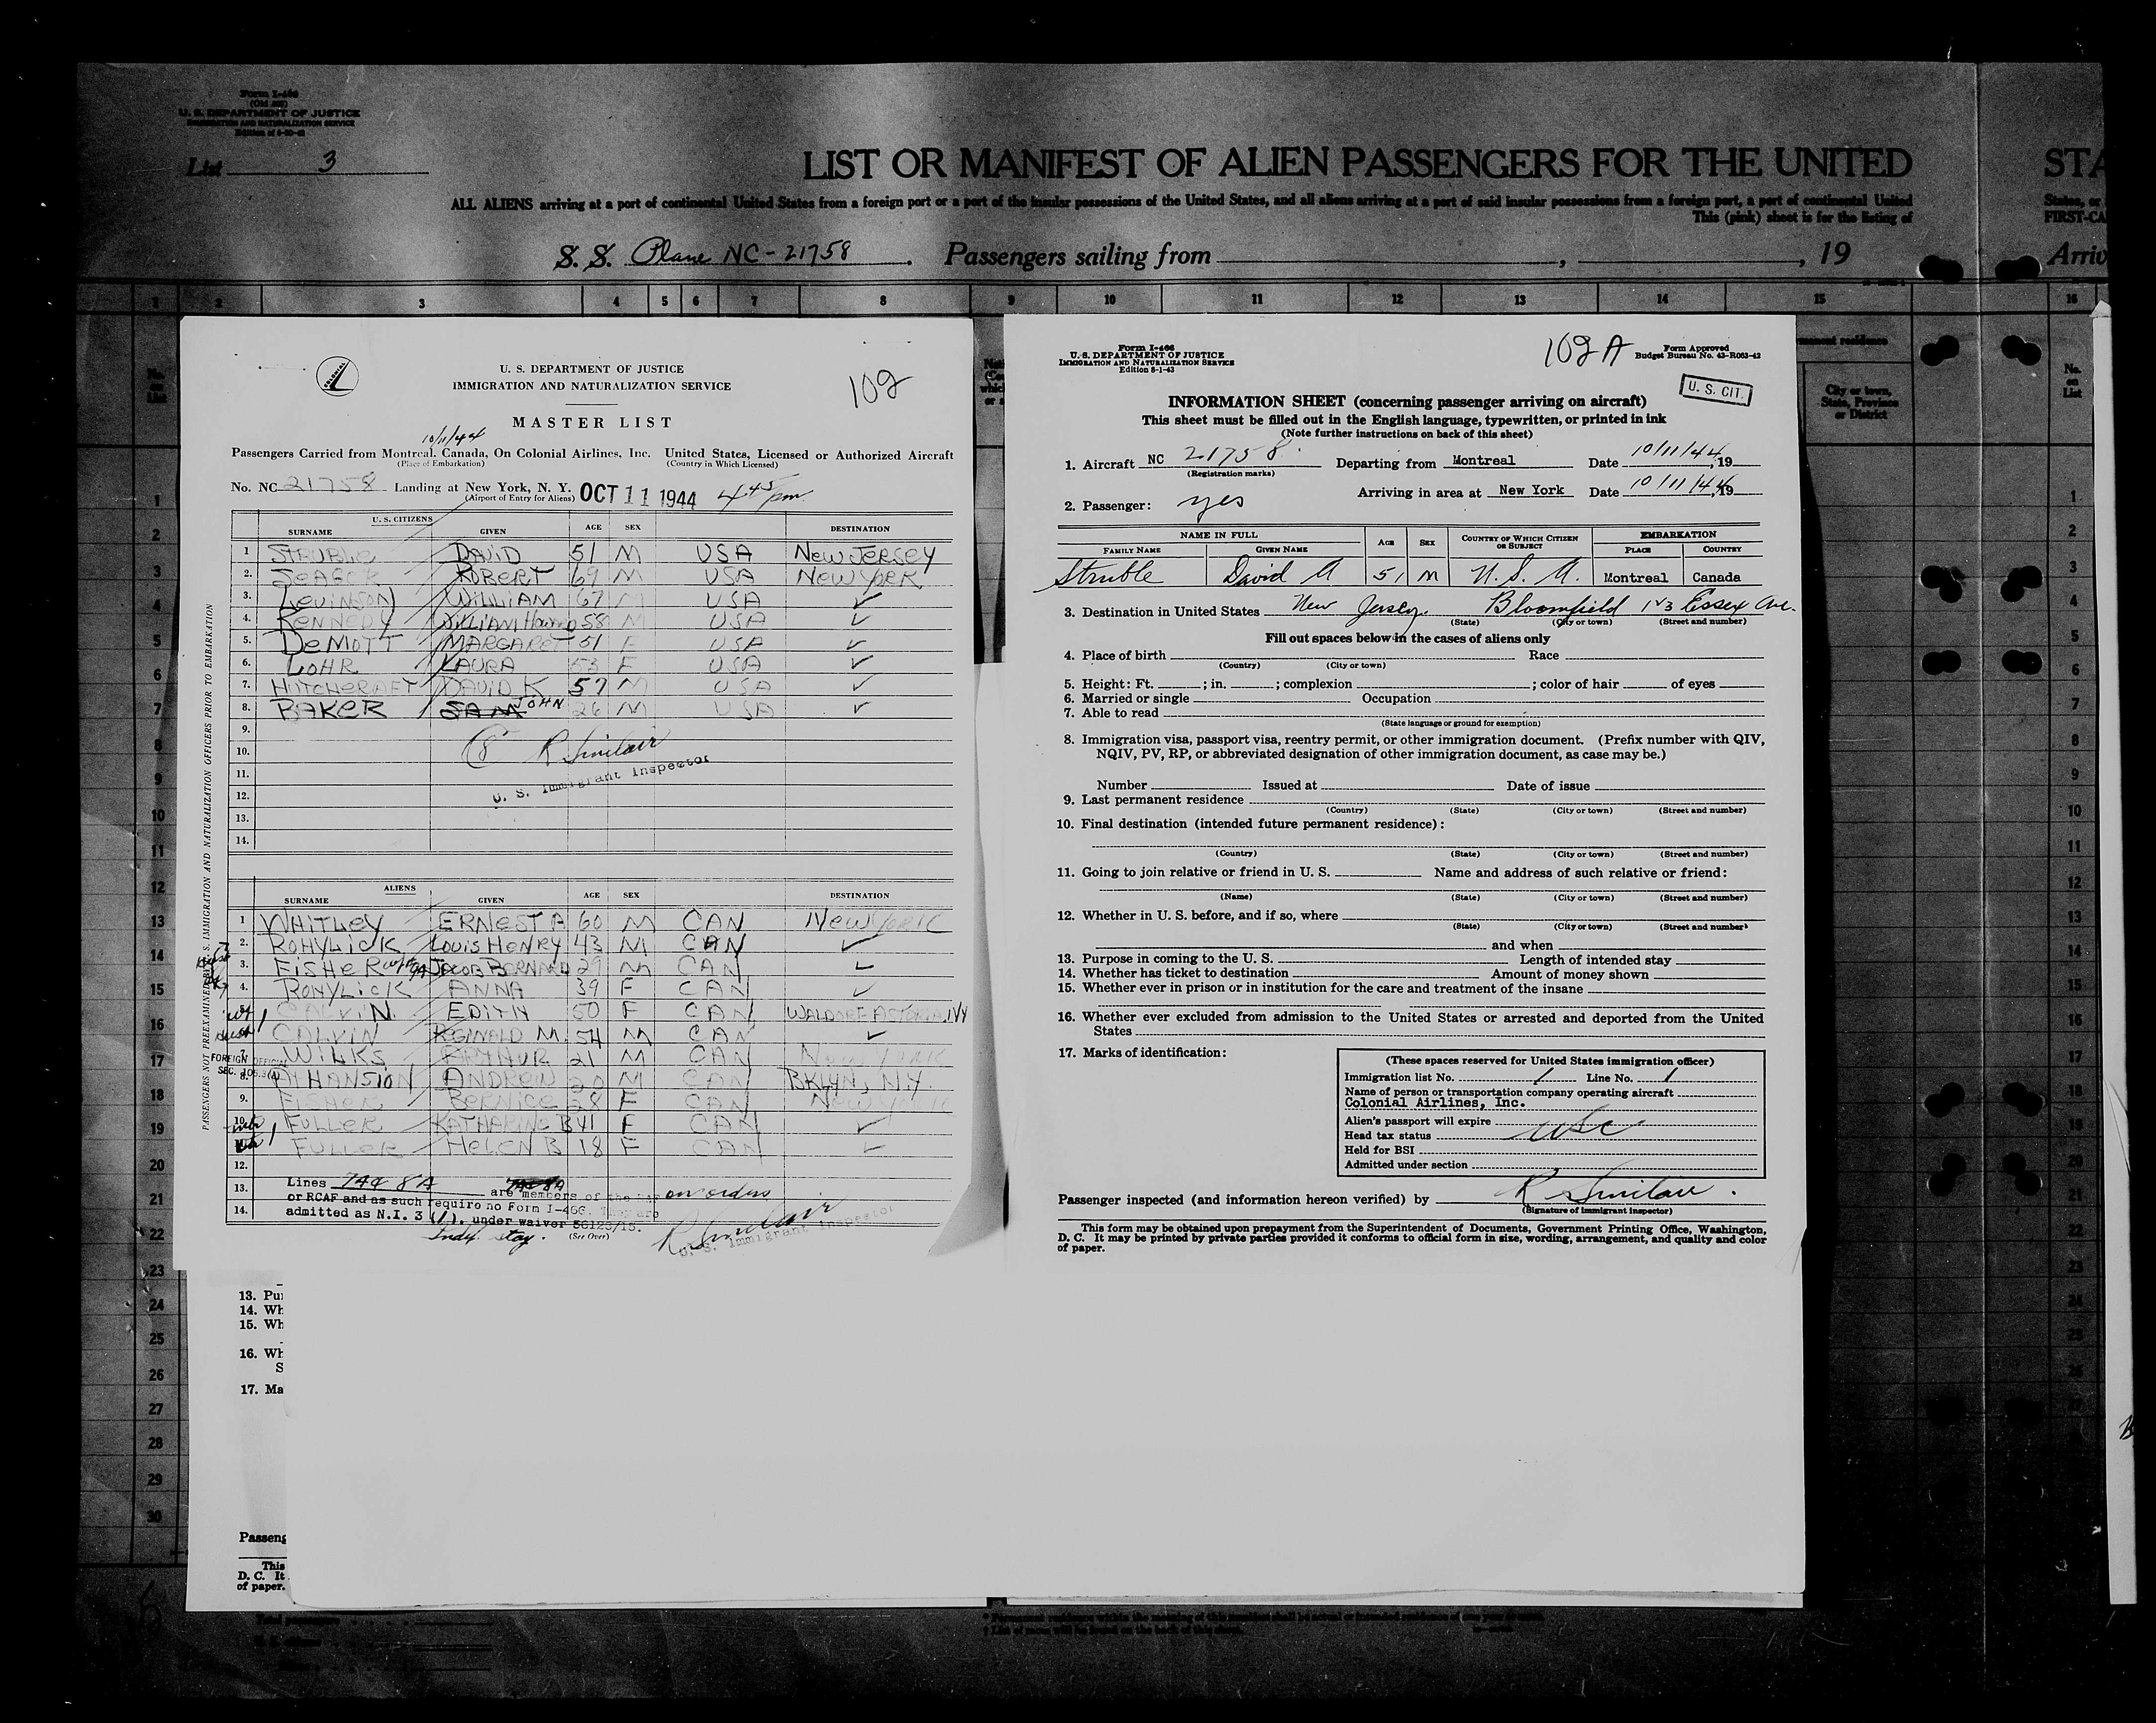 Form I-466
(Old 500)
U. S. DEPARTMENT OF JUSTICE
IMMIGRATION AND NATURALIZATION SERVICE
List 3
LIST OR MANIFEST OF ALIEN PASSENGERS FOR THE UNITED STA
ALL ALIENS arriving at a port of continental United States from a foreign port or a port of the insular possessions of the United States, and all aliens arriving at a port of said insular possessions from a foreign port, a port of continental United States, or
This (pink) sheet is for the listing of FIRST-CA
S. S. Plane NC-21758. Passengers sailing from , , 19 Arriv
1 2 3 4 5 6 7 8 9 10 11 12 13 14 15 16
COLONIAL
U. S. DEPARTMENT OF JUSTICE
IMMIGRATION AND NATURALIZATION SERVICE
109
MASTER LIST
10/11/44
Passengers Carried from Montreal, Canada, On Colonial Airlines, Inc. United States, Licensed or Authorized Aircraft
(Place of Embarkation) (Country in Which Licensed)
No. NC 21758 Landing at New York, N. Y. OCT 11 1944 4 45 pm
(Airport of Entry for Aliens)
U. S. CITIZENS
SURNAME GIVEN AGE SEX DESTINATION
1 STRUBLE DAVID 51 M USA NEW JERSEY
2. SEAGER ROBERT 69 M USA NEW YORK
3. LEVINSON WILLIAM 67 M USA ✓
4. KENNEDY WILLIAM Howard 58 M USA ✓
5. DEMOTT MARGARET 51 F USA ✓
6. LOHR LAURA 53 F USA ✓
7. HUTCHCRAFT DAVID K 57 M USA ✓
8. BAKER SAM JOHN 26 M USA ✓
9.
10. 8 R Sinclair
11. U. S. Immigrant Inspector
12.
13.
14.
PASSENGERS NOT PREEXAMINED BY U. S. IMMIGRATION AND NATURALIZATION OFFICERS PRIOR TO EMBARKATION
ALIENS
SURNAME GIVEN AGE SEX DESTINATION
1 WHITLEY ERNEST A 60 M CAN NEW YORK
2. ROHYLICK LOUIS HENRY 43 M CAN ✓
3. FISHER JACOB BERNARD 29 M CAN ✓
4. ROHYLICK ANNA 39 F CAN ✓
5. CALVIN EDITH 50 F CAN WALDORF ASTORIA, NY
6. CALVIN REGINALD M. 54 M CAN ✓
7. WILKS ARTHUR 21 M CAN NEW YORK
FOREIGN OFFICIAL
8. ATHANSION ANDREW 20 M CAN BKLYN, N.Y.
9. FISHER BERNICE 28 F CAN NEW YORK
10. FULLER KATHARINE B 41 F CAN ✓
11. FULLER HELEN B 18 F CAN ✓
12.
13. Lines 7A & 8A are members of the on orders
or RCAF and as such require no Form I-466. They are
14. admitted as N.I. 3 (1). under waiver 56125/15.
Indef stay. (See Over) R Sinclair
U. S. Immigrant Inspector
Form I-466
U. S. DEPARTMENT OF JUSTICE
IMMIGRATION AND NATURALIZATION SERVICE
Edition 8-1-43
109 A
Form Approved
Budget Bureau No. 43-R063-42
U. S. CIT.
INFORMATION SHEET (concerning passenger arriving on aircraft)
This sheet must be filled out in the English language, typewritten, or printed in ink
(Note further instructions on back of this sheet)
1. Aircraft NC 21758 Departing from Montreal Date 10/11/44, 19
(Registration marks)
Arriving in area at New York Date 10/11/44, 19
2. Passenger: yes
NAME IN FULL AGE SEX COUNTRY OF WHICH CITIZEN OR SUBJECT EMBARKATION
FAMILY NAME GIVEN NAME PLACE COUNTRY
Struble David A 51 M U. S. A. Montreal Canada
3. Destination in United States New Jersey. Bloomfield 123 Essex Ave.
(State) (City or town) (Street and number)
Fill out spaces below in the cases of aliens only
4. Place of birth Race
(Country) (City or town)
5. Height: Ft. ; in. ; complexion ; color of hair of eyes
6. Married or single Occupation
7. Able to read
(State language or ground for exemption)
8. Immigration visa, passport visa, reentry permit, or other immigration document. (Prefix number with QIV,
NQIV, PV, RP, or abbreviated designation of other immigration document, as case may be.)
Number Issued at Date of issue
9. Last permanent residence
(Country) (State) (City or town) (Street and number)
10. Final destination (intended future permanent residence):
(Country) (State) (City or town) (Street and number)
11. Going to join relative or friend in U. S. Name and address of such relative or friend:
(Name) (State) (City or town) (Street and number)
12. Whether in U. S. before, and if so, where
(State) (City or town) (Street and number)
and when
13. Purpose in coming to the U. S. Length of intended stay
14. Whether has ticket to destination Amount of money shown
15. Whether ever in prison or in institution for the care and treatment of the insane
16. Whether ever excluded from admission to the United States or arrested and deported from the United
States
17. Marks of identification:
(These spaces reserved for United States immigration officer)
Immigration list No. 1 Line No. 1
Name of person or transportation company operating aircraft
Colonial Airlines, Inc.
Alien's passport will expire
Head tax status usc
Held for BSI
Admitted under section
Passenger inspected (and information hereon verified) by R Sinclair.
(Signature of immigrant inspector)
This form may be obtained upon prepayment from the Superintendent of Documents, Government Printing Office, Washington,
D. C. It may be printed by private parties provided it conforms to official form in size, wording, arrangement, and quality and color
of paper.
13. Pu
14. Wh
15. Wh
16. Wh
S
17. Ma
Passeng
This
D. C. It
of paper.